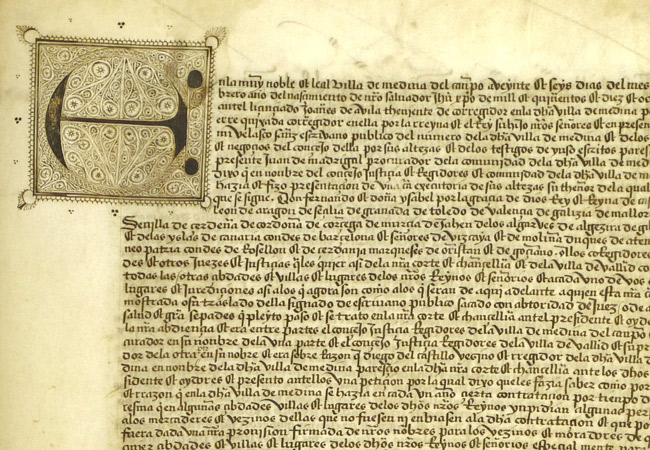 En la muy noble et leal villa de medina del canpo a veynte et seys dias del mes
brero año del nasçimiento de nro salvador ihu xpo de mill et quinientos et diez et oc
ante el liçençiado Joanes de avila theniente de corregidor en la dha villa de medina p
erre quixada corregidor en ella por la reyna et el rey su hijo nros señores et en presen
mi velasco escrivano publico del numero de la dha villa de medina et delos
et negoçios del conçejo della por sus altezas et delos testigos de yuso escritos pares
presente Juan de madrigal procurador dela comunidad dela dha villa de med
dixo q en nonbre del conçejo Justiçia et Regidores et comunidad dela dha villa de me
hazia et fizo presentaçion de una carta executoria de sus altezas su thenor dela qual
que se sigue. Don fernando et doña ysabel por la graçia de dios Rey et Reyna de cas
leon de aragon de seçilia de granada de toledo de valençia de galizia de mallor
Sevilla de çerdeña de cordova de corçega de murçia de Jahen delos algarves de algezira de gi
et delas yslas de canaria condes de barçelona et señores de vizcaya et de molina duques de aten
neo patria condes de Rosellon et de çerdania marqueses de oristan et de goçiano. Alos corregidores
des et otros Juezes et Justiçias qles quier asi dela nra corte et chançelleria et dela villa de vallid co
todas las otras çibdades et villas et lugares delos nros Reynos et señorios et a cada uno de vos
lugares et Jurediçiones asi alos q agora son como alos q seran de aqui adelante a quien esta nra ca
mostrada o su traslado della signado de escrivano publico sacado con abtoridad de Juez o de a
salud et gra sepades q pleyto paso et se trato en la nra corte et chançelleria antel presidente et oyd
la nra abdiençia et era entre partes el conçejo Justiçia Regidores dela villa de medina del canpo
curador en su nonbre dela una parte et el conçejo Justiçia Regidores dela villa de vallid et su p
dor dela otra en su nonbre et era sobre Razon q diego del castillo vezino et rregidor dela dha villa d
dina en nonbre dela dha villa de medina paresçio en la dha nra corte et chançelleria ante los dhos
sidente et oydores et presento antellos una petiçion por la qual dixo que les fazia saber como por
et razon q en la dha villa de medina se hazia en cada un año çierta contrataçion por tienpo d
resma q en algunas çibdades villas et lugares delos dhos nros Reynos ynpidian algunas per
alos mercaderes et vezinos dellas que no fuesen ni enbiasen ala dha contrataçion et que po
fuera dada una nra provision firmada de nros nonbres para los vezinos et moradores de q
quier çibdades et villas et lugares delos dhos nros Reynos et señorios espeçial mente par